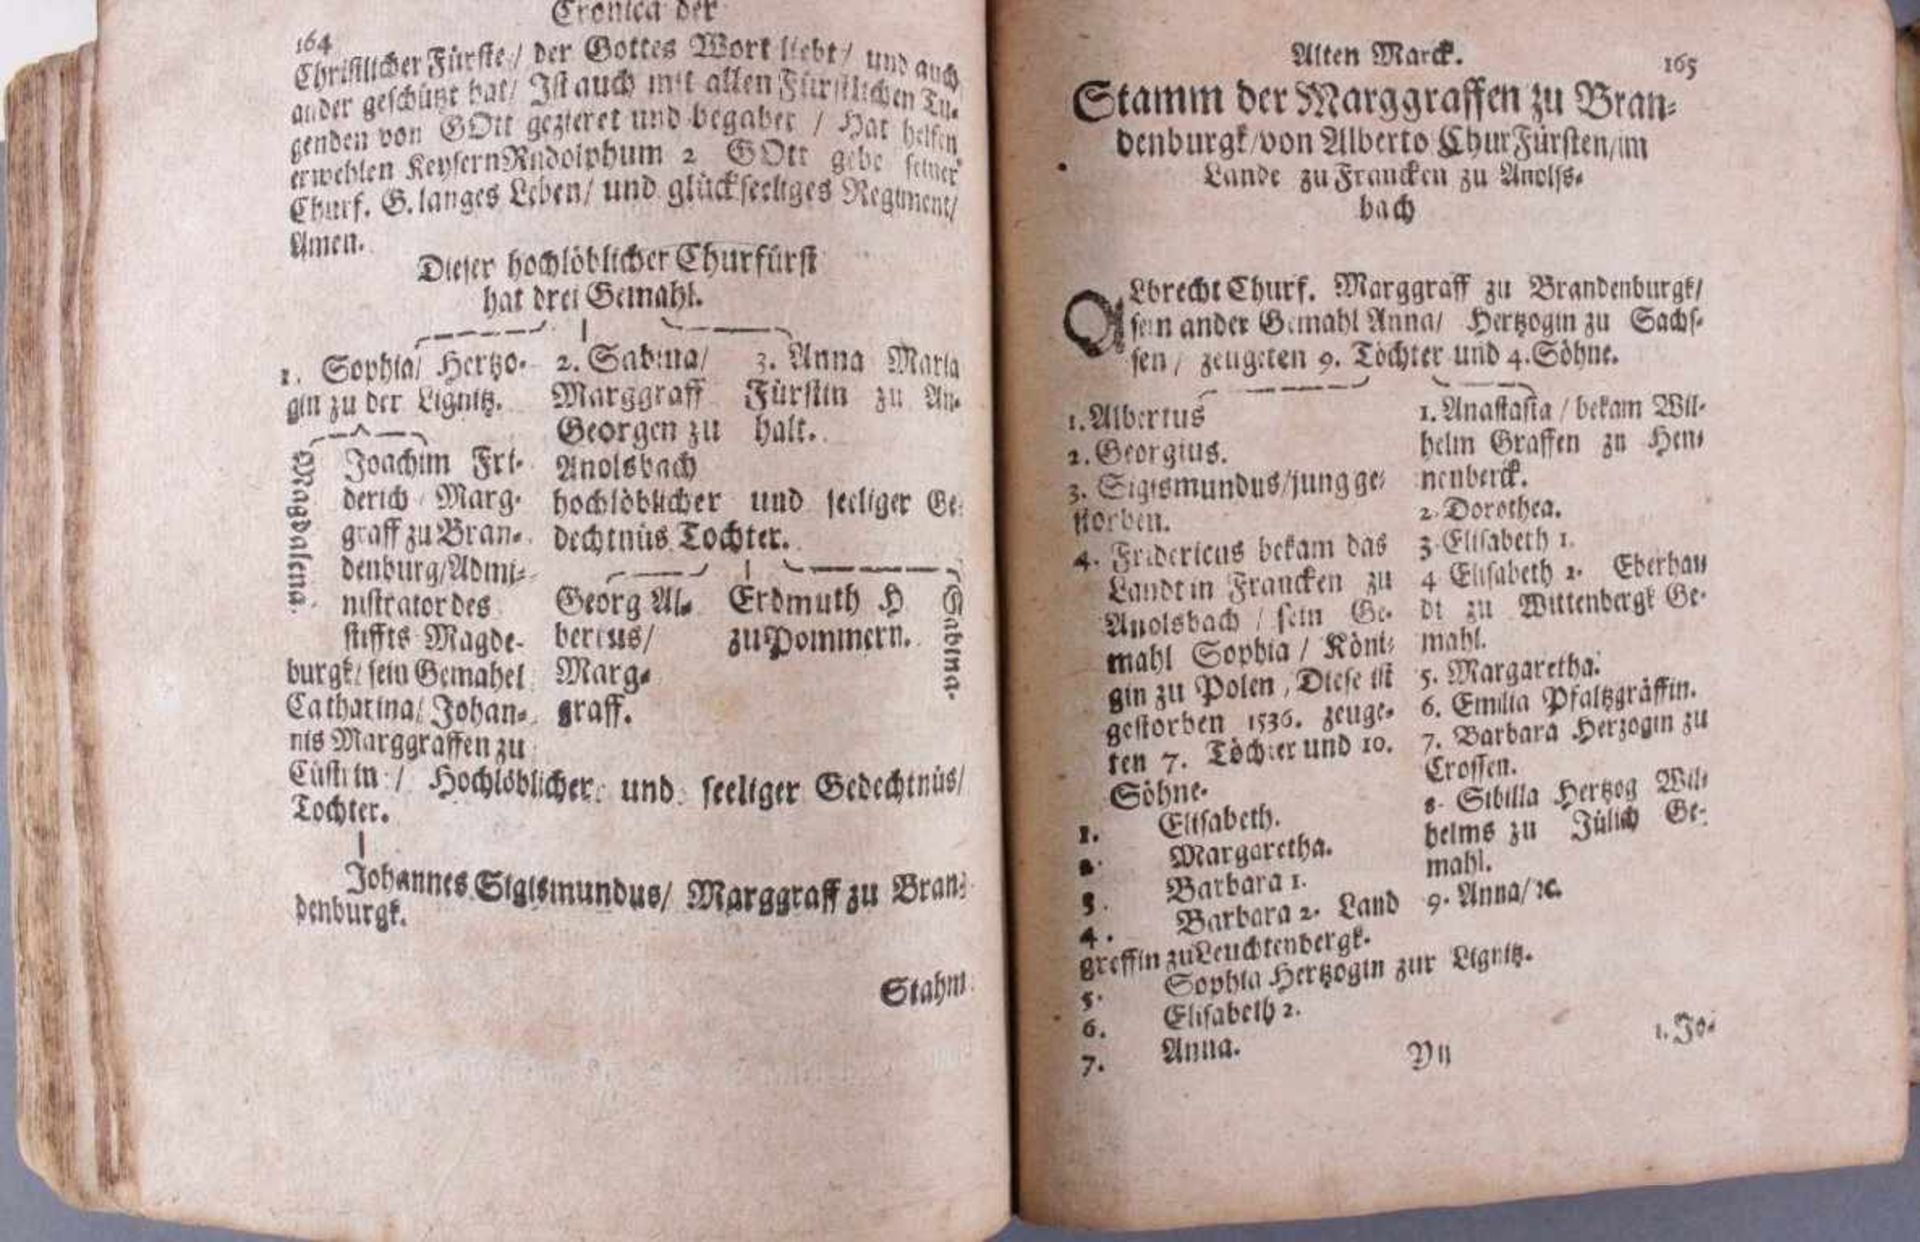 Cronica der
164
Christlicher Fürste / der Gottes Wort liebt / und auch
ander geschützt hat / Ist auch mit allen Fürstlichen Tu-
genden von GOtt gezieret und begabet / Hat helfen
erwehlen Keysern Rudolphum 2 GOtt gebe seiner
Churf. G. langes Leben / und glückseeliges Regiment /
Amen.
Dieser hochlöblicher Churfürst
hat drei Gemahl.
1. Sophia / Hertzo-
gin zu der Lignitz.
Magdalena.
Joachim Fri-
derich Marg-
graff zu Bran-
denburg / Admi-
nistrator des
stiffts Magde-
burgk / sein Gemahel
Catharina / Johan-
nis Marggraffen zu
Cüstrin / Hochlöblicher und seeliger Gedechtnüs /
Tochter.
2. Sabina /
Marggraff
Georgen zu
Anolsbach
3. Anna Maria
Fürstin zu An-
halt.
hochlöblicher und seeliger Ge-
dechtnüs Tochter.
Georg Al-
bertus /
Marg-
graff.
Erdmuth H
zu Pommern.
Sabina.
Johannes Sigismundus / Marggraff zu Bran-
denburgk.
Stahm
Alten Marck.
165
Stamm der Marggraffen zu Bran-
denburgk / von Alberto ChurFürsten / im
Lande zu Francken zu Anolss-
bach
ALbrecht Churf. Marggraff zu Brandenburgk /
sein ander Gemahl Anna / Hertzogin zu Sachs-
sen / zeugeten 9. Töchter und 4. Söhne.
1. Albertus
2. Georgius.
3. Sigismundus / jung ge-
storben.
4. Fridericus bekam das
Landt in Francken zu
Anolsbach / sein Ge-
mahl Sophia / Köni-
gin zu Polen, Diese ist
gestorben 1536. zeuge-
ten 7. Töchter und 10.
Söhne.
1. Elisabeth.
2. Margaretha.
3. Barbara 1.
4. Barbara 2. Land
greffin zu Leuchtenbergk.
5. Sophia Hertzogin zur Lignitz.
6. Elisabeth 2.
7. Anna.
1. Anastasia / bekam Wil-
helm Graffen zu Hen-
nenberck.
2. Dorothea.
3. Elisabeth 1.
4 Elisabeth 2. Eberhan
dt zu Wittenbergk Ge-
mahl.
5. Margaretha.
6. Emilia Pfaltzgräffin.
7. Barbara Herzogin zu
Crossen.
8. Sibilla Hertzog Wil-
helms zu Jülich Ge-
mahl.
9. Anna / ꝛc.
Yij
1. Jo-